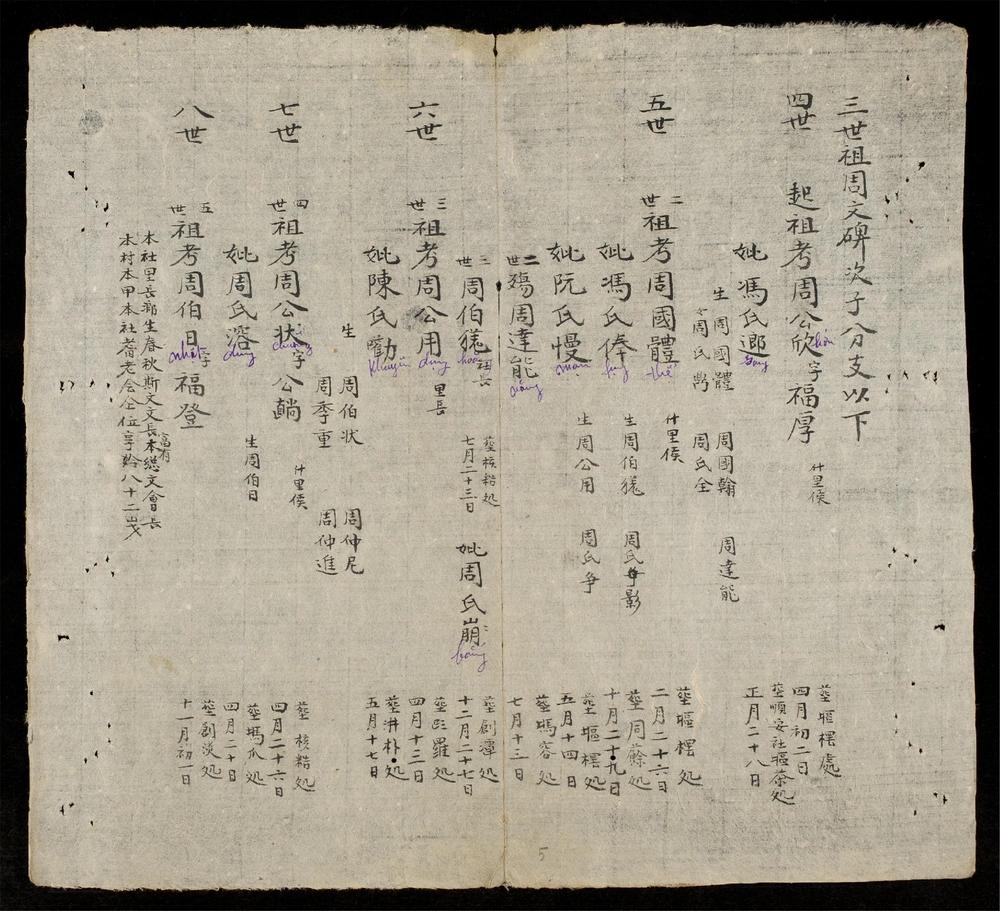 三世祖周文碑次子分支以下
四世
起祖考周公欣字福厚
hân
什里侯
葬塸檡處
四月初二日
妣馮氏𨓐
葬順安社塸荼処
正月二十八日
生周國體
周國翰
周達能
周氏
周氏全
五世
二世祖考周國體
thể
什里侯
葬塸檡処
二月二十六日
妣馮氏俸
生周伯㹯
周氏影
葬同蘇処
十月二十九日
妣阮氏慢
mạn
生周公用
周氏爭
葬塸檡処
五月十四日
二世殤周達能
năng
葬塢容処
七月十三日
三世周伯
社長
葬核楛処
七月二十三日
妣周氏崩
băng
葬創潭処
十二月二十七日
六世
三世祖考周公用
dụng
里長
葬羅処
四月十三日
妣陳氏勸
khuyến
葬洴朴処
五月十七日
生
周伯状
周季重
周仲尼
周仲進
七世
四世祖考周公状字公
什里侯
葬核楛処
四月二十六日
妣周氏溶
dung
生周伯日
葬塢瓜処
四月二十日
八世
五世祖考周伯日字福登
nhật
葬創淡処
十一月初一日
本社里長鄉生春秋斯文文長本總文會長
富有
本村本甲本社耆老会仝位享齡八十二歲
5